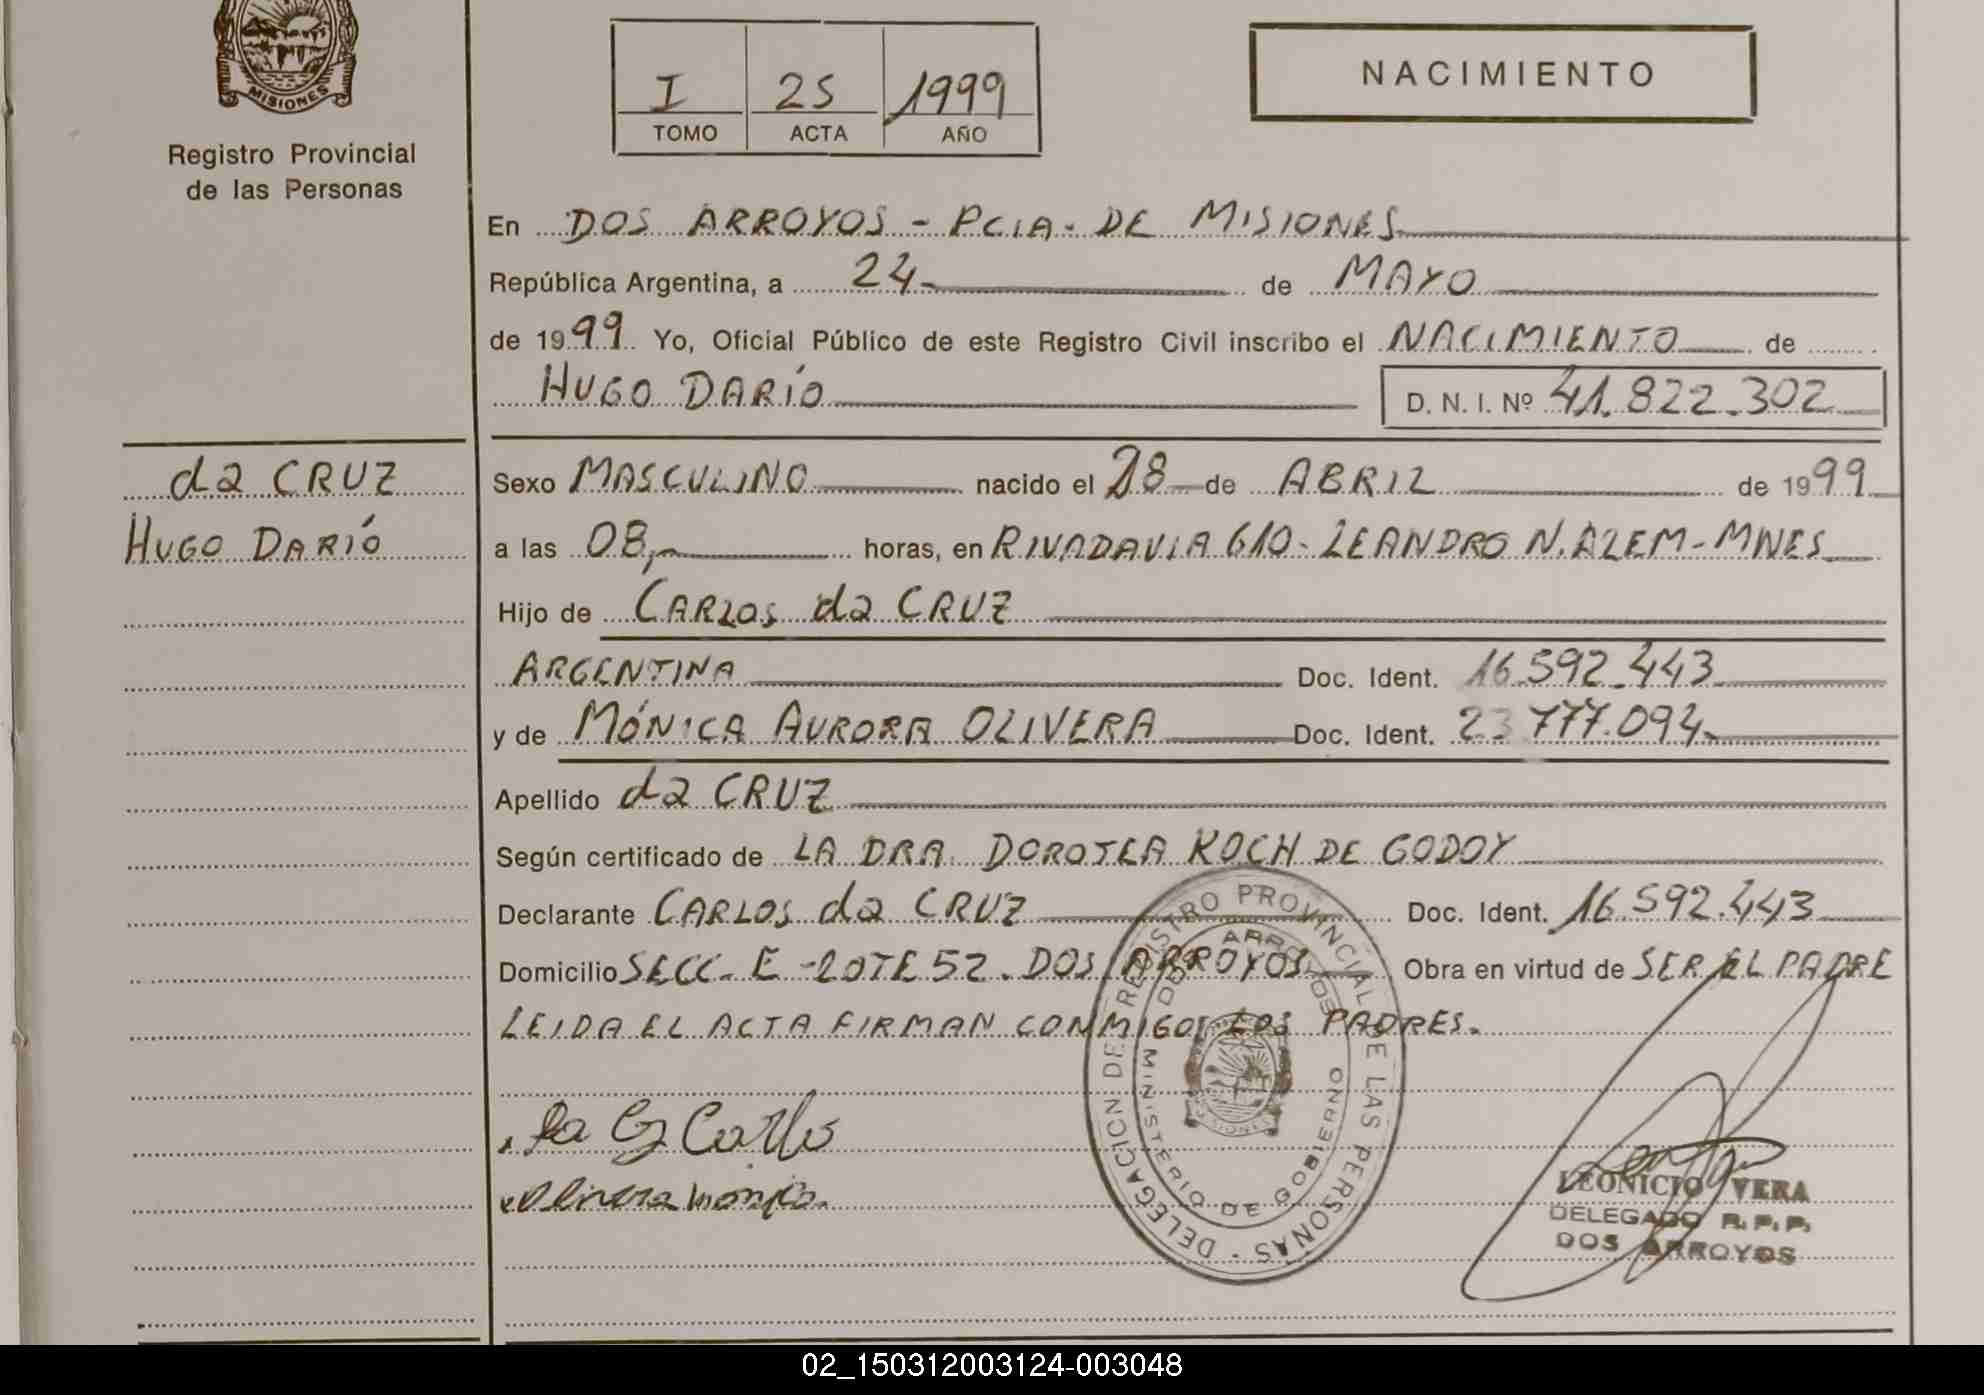 MISIONES
Registro Provincial
de las Personas
I 25 1999
TOMO ACTA AÑO
NACIMIENTO
En DOS ARROYOS - PCIA. DE MISIONES
República Argentina, a 24 de MAYO
de 1999 Yo, Oficial Público de este Registro Civil inscribo el NACIMIENTO de
HUGO DARÍO D. N. I. Nº 41.822.302
da CRUZ
HUGO DARÍO
Sexo MASCULINO nacido el 28 de ABRIL de 1999
a las 08,- horas, en RIVADAVIA 610 - LEANDRO N. ALEM - MNES
Hijo de CARLOS da CRUZ
ARGENTINA Doc. Ident. 16.592.443
y de MÓNICA AURORA OLIVERA Doc. Ident. 23 777.094
Apellido da CRUZ
Según certificado de LA DRA. DOROTEA KOCH DE GODOY
Declarante CARLOS da CRUZ Doc. Ident. 16.592.443
Domicilio SECC. E - LOTE 52. DOS ARROYOS Obra en virtud de SER EL PADRE
LEIDA EL ACTA FIRMAN CONMIGO LOS PADRES.
DELEGACION DE REGISTRO PROVINCIAL DE LAS PERSONAS -
DOS ARROYOS
MINISTERIO DE GOBIERNO
MISIONES
da Cz Carlos
Olivera Monica
LEONICIO VERA
DELEGADO R. P. P.
DOS ARROYOS
02_150312003124-003048